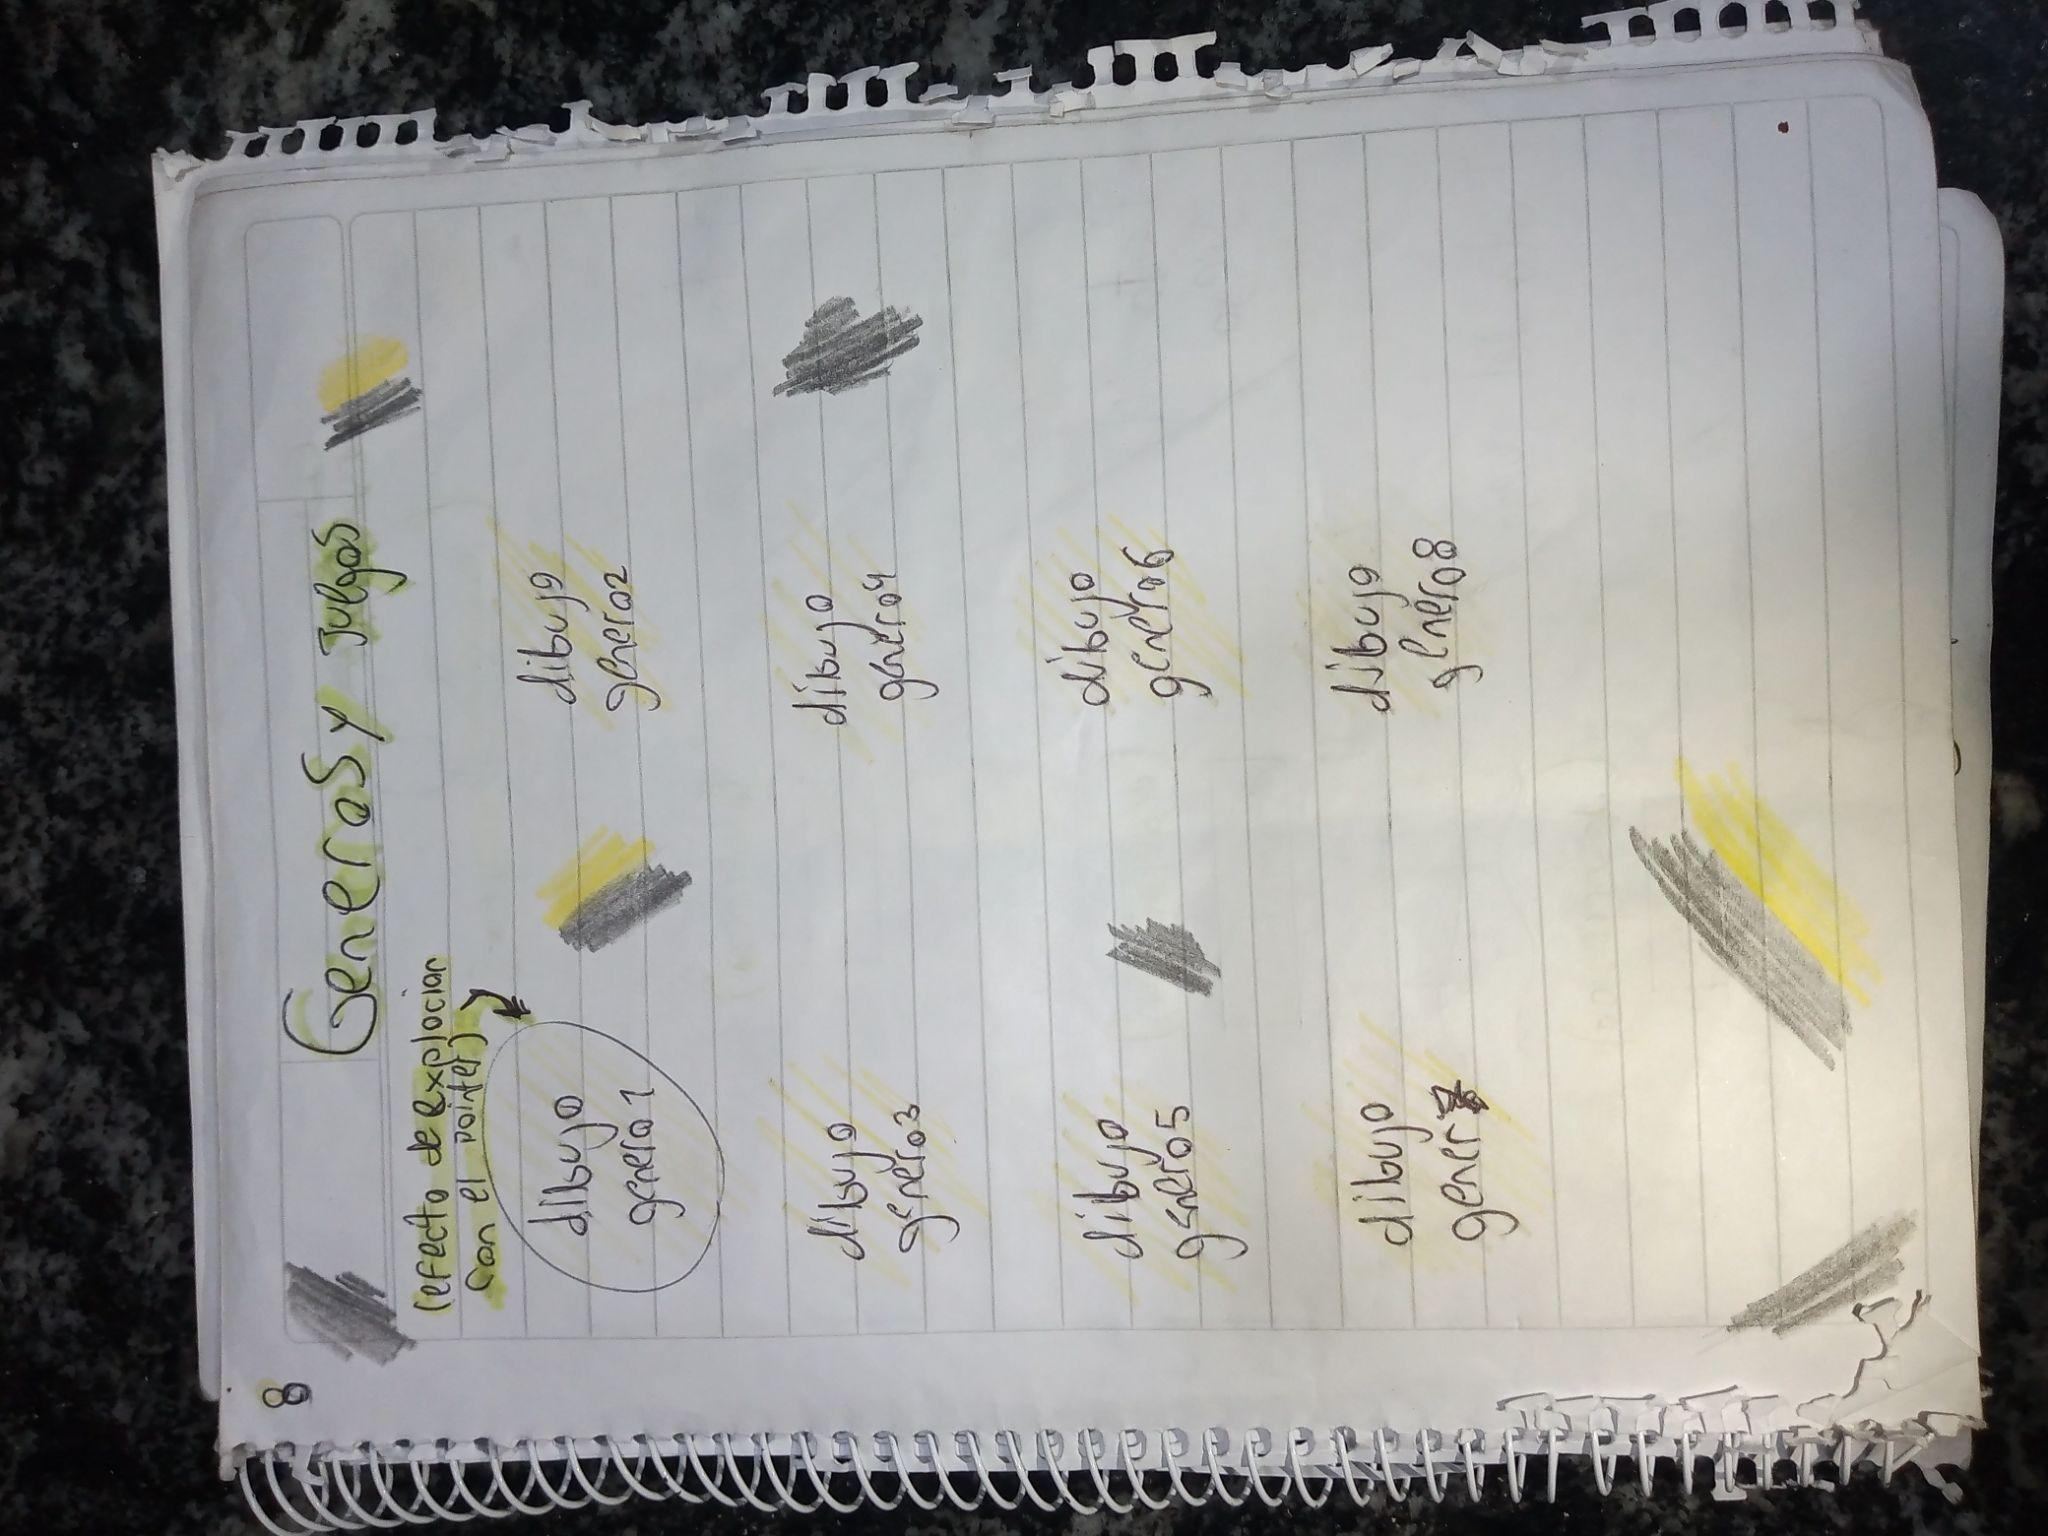 8
Generos y Juegos
(efecto de explocion
con el pointer)
dibujo
genero 1
dibujo
genero 2
dibujo
genero 3
dibujo
genero 4
dibujo
genero 5
dibujo
genero 6
dibujo
gener 7
dibujo
genero 8